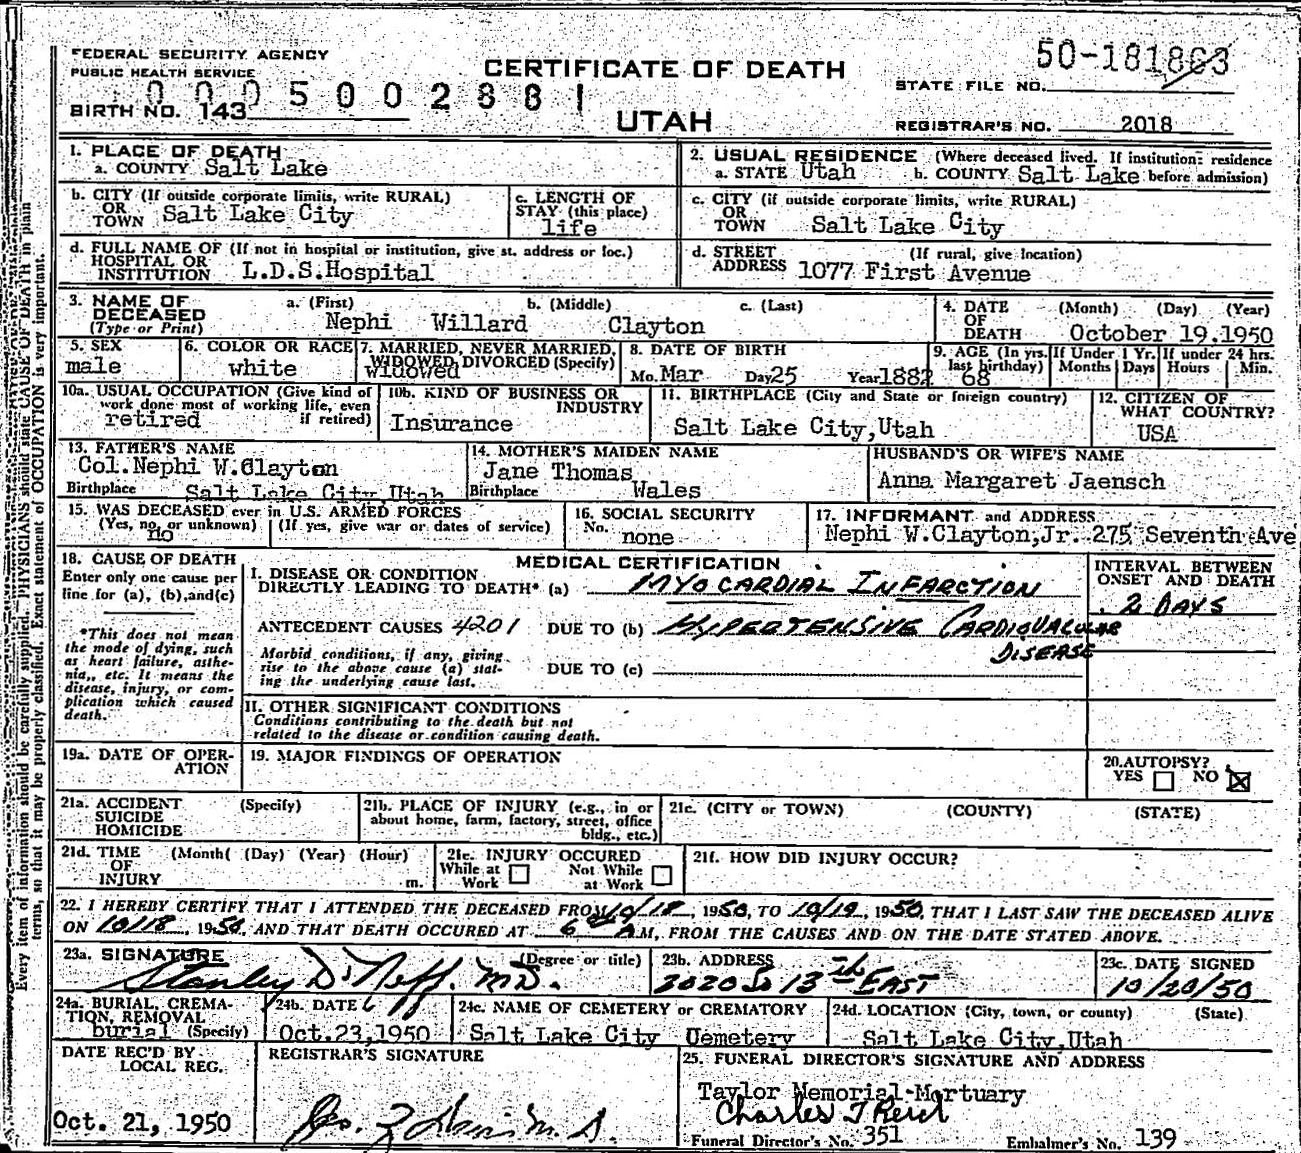 FEDERAL SECURITY AGENCY
PUBLIC HEALTH SERVICE
0005002881
BIRTH NO. 143
CERTIFICATE OF DEATH
UTAH
50-181863
STATE FILE NO.
REGISTRAR'S NO. 2018
1. PLACE OF DEATH
a. COUNTY Salt Lake
2. USUAL RESIDENCE (Where deceased lived. If institution: residence
a. STATE Utah b. COUNTY Salt Lake before admission)
b. CITY (If outside corporate limits, write RURAL)
OR
TOWN Salt Lake City
c. LENGTH OF
STAY (this place)
life
c. CITY (if outside corporate limits, write RURAL)
OR
TOWN Salt Lake City
d. FULL NAME OF (If not in hospital or institution, give st. address or loc.)
HOSPITAL OR
INSTITUTION L.D.S.Hospital
d. STREET (If rural, give location)
ADDRESS 1077 First Avenue
3. NAME OF DECEASED a. (First) b. (Middle) c. (Last)
(Type or Print) Nephi Willard Clayton
4. DATE OF DEATH (Month) (Day) (Year)
October 19.1950
5. SEX
male
6. COLOR OR RACE
white
7. MARRIED, NEVER MARRIED,
WIDOWED, DIVORCED (Specify)
widowed
8. DATE OF BIRTH
Mo. Mar Day 25 Year 1882
9. AGE (In yrs. last birthday) 68
If Under 1 Yr. Months Days
If under 24 hrs. Hours Min.
10a. USUAL OCCUPATION (Give kind of
work done most of working life, even
if retired)
retired
10b. KIND OF BUSINESS OR
INDUSTRY
Insurance
11. BIRTHPLACE (City and State or foreign country)
Salt Lake City,Utah
12. CITIZEN OF
WHAT COUNTRY?
USA
13. FATHER'S NAME
Col.Nephi W.Clayton
Birthplace Salt Lake City,Utah
14. MOTHER'S MAIDEN NAME
Jane Thomas
Birthplace Wales
HUSBAND'S OR WIFE'S NAME
Anna Margaret Jaensch
15. WAS DECEASED ever in U.S. ARMED FORCES
(Yes, no, or unknown) (If yes, give war or dates of service)
no
16. SOCIAL SECURITY
No. none
17. INFORMANT and ADDRESS
Nephi W.Clayton,Jr. 275 Seventh Ave
18. CAUSE OF DEATH
Enter only one cause per
line for (a), (b),and(c)
*This does not mean
the mode of dying, such
as heart failure, asthe-
nia,, etc. It means the
disease, injury, or com-
plication which caused
death.
MEDICAL CERTIFICATION
I. DISEASE OR CONDITION
DIRECTLY LEADING TO DEATH* (a) MYOCARDIAL INFARCTION
INTERVAL BETWEEN
ONSET AND DEATH
2 DAYS
ANTECEDENT CAUSES 4201 DUE TO (b) HYPERTENSIVE
DISEASE
Morbid conditions, if any, giving
rise to the above cause (a) stat-
ing the underlying cause last.
DUE TO (c)
II. OTHER SIGNIFICANT CONDITIONS
Conditions contributing to the death but not
related to the disease or condition causing death.
19a. DATE OF OPER-
ATION
19. MAJOR FINDINGS OF OPERATION
20. AUTOPSY?
YES NO
21a. ACCIDENT (Specify)
SUICIDE
HOMICIDE
21b. PLACE OF INJURY (e.g., in or
about home, farm, factory, street, office
bldg., etc.)
21c. (CITY or TOWN) (COUNTY) (STATE)
21d. TIME (Month( (Day) (Year) (Hour)
OF
INJURY m.
21e. INJURY OCCURED
While at Work Not While at Work
21f. HOW DID INJURY OCCUR?
22. I HEREBY CERTIFY THAT I ATTENDED THE DECEASED FROM 10/18, 1950, TO 10/19, 1950, THAT I LAST SAW THE DECEASED ALIVE
ON 10/18, 1950, AND THAT DEATH OCCURED AT 6 AM, FROM THE CAUSES AND ON THE DATE STATED ABOVE.
23a. SIGNATURE (Degree or title)
Stanley D. Neff. M.D.
23b. ADDRESS
2020 So 13th EAST
23c. DATE SIGNED
10/20/50
24a. BURIAL, CREMA-
TION, REMOVAL
burial (Specify)
24b. DATE
Oct.23,1950
24c. NAME OF CEMETERY or CREMATORY
Salt Lake City Cemetery
24d. LOCATION (City, town, or county) (State)
Salt Lake City,Utah
DATE REC'D BY
LOCAL REG.
Oct. 21, 1950
REGISTRAR'S SIGNATURE
25. FUNERAL DIRECTOR'S SIGNATURE AND ADDRESS
Taylor Memorial Mortuary
Charles T Reid
Funeral Director's No. 351 Embalmer's No. 139
Every item of information should be carefully supplied. PHYSICIANS should state CAUSE OF DEATH in plain
terms, so that it may be properly classified. Exact statement of OCCUPATION is very important.